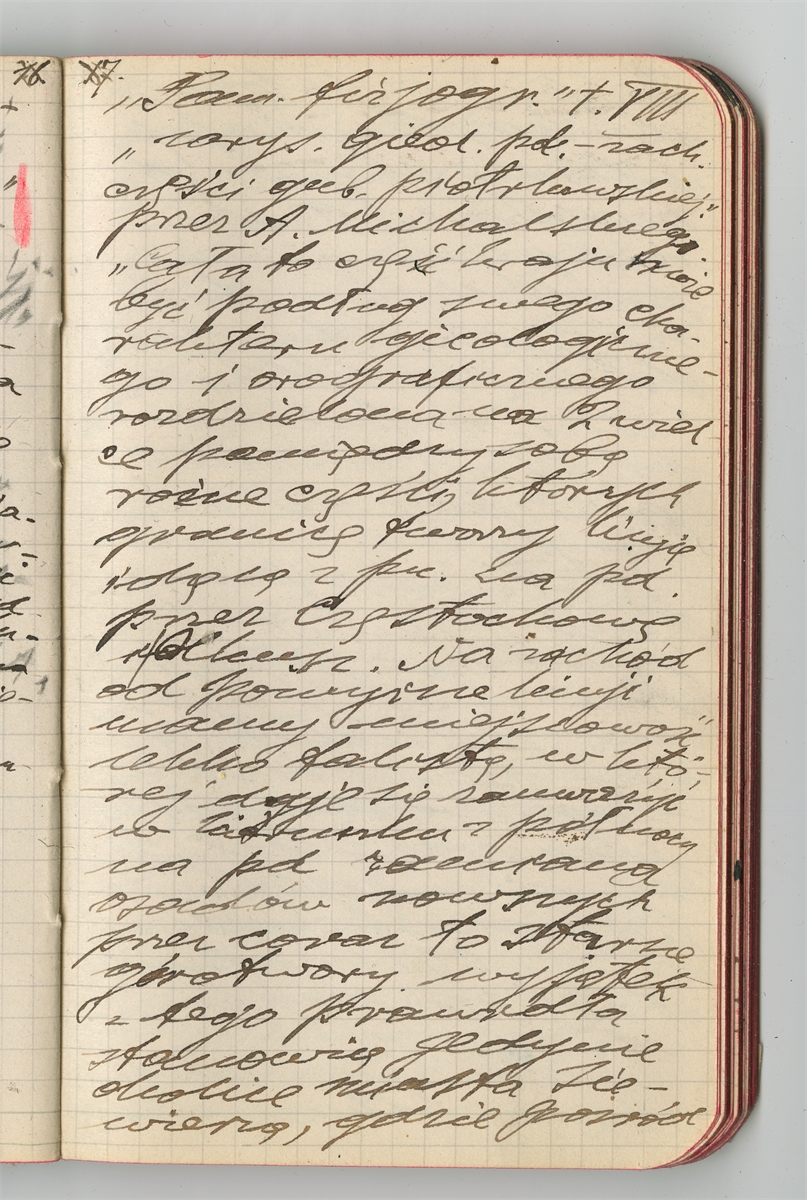 16 17.
„Pam. fizjogr." t. VIII
„zarys. gieol. pd.-zach.
części gub. piotrkowskiej"
przez A. Michalskiego
„Cała ta część kraju może
być podług swego cha-
rakteru gieologiczne-
go i orograficznego
rozdzielona na 2 wiel-
ce pomiędzy sobą
różne części, których
granicę tworzy linję
idącą z pn. na pd.
przez Częstochowę
i Olkusz. Na zachód
od powyższe linji
mamy miejscowość
lekko falistą, w któ-
rej daje się zauważyć
w kierunku z północy
na pd zamiana
osadów nowszych
przez coraz to starsze
górotwory. wyjątek
z tego prawidła
stanowią jedynie
okolice miasta Sie-
wierza, gdzie pośród